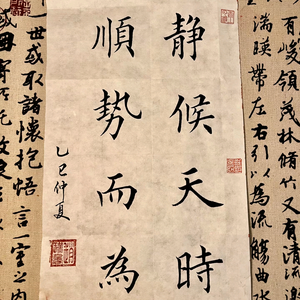 有峻領茂林脩竹又有清流激
湍暎帶左右引以為流觴曲水
静候天時
順勢而為
乙巳仲夏
世或取諸懷抱悟言一室之内
或因寄所託放